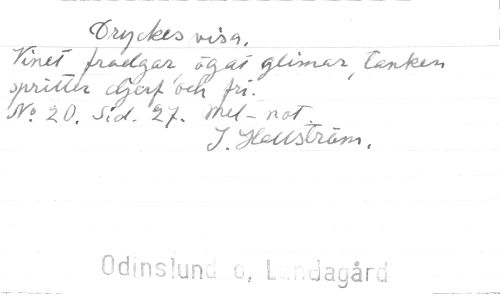 Dryckesvisa.
Vinet fradgar ögat glimar, tanken
spritter djerf och fri.
No 20. Sid. 27. Mel-not.
J. Hellström.
Odinslund o, Lundagård